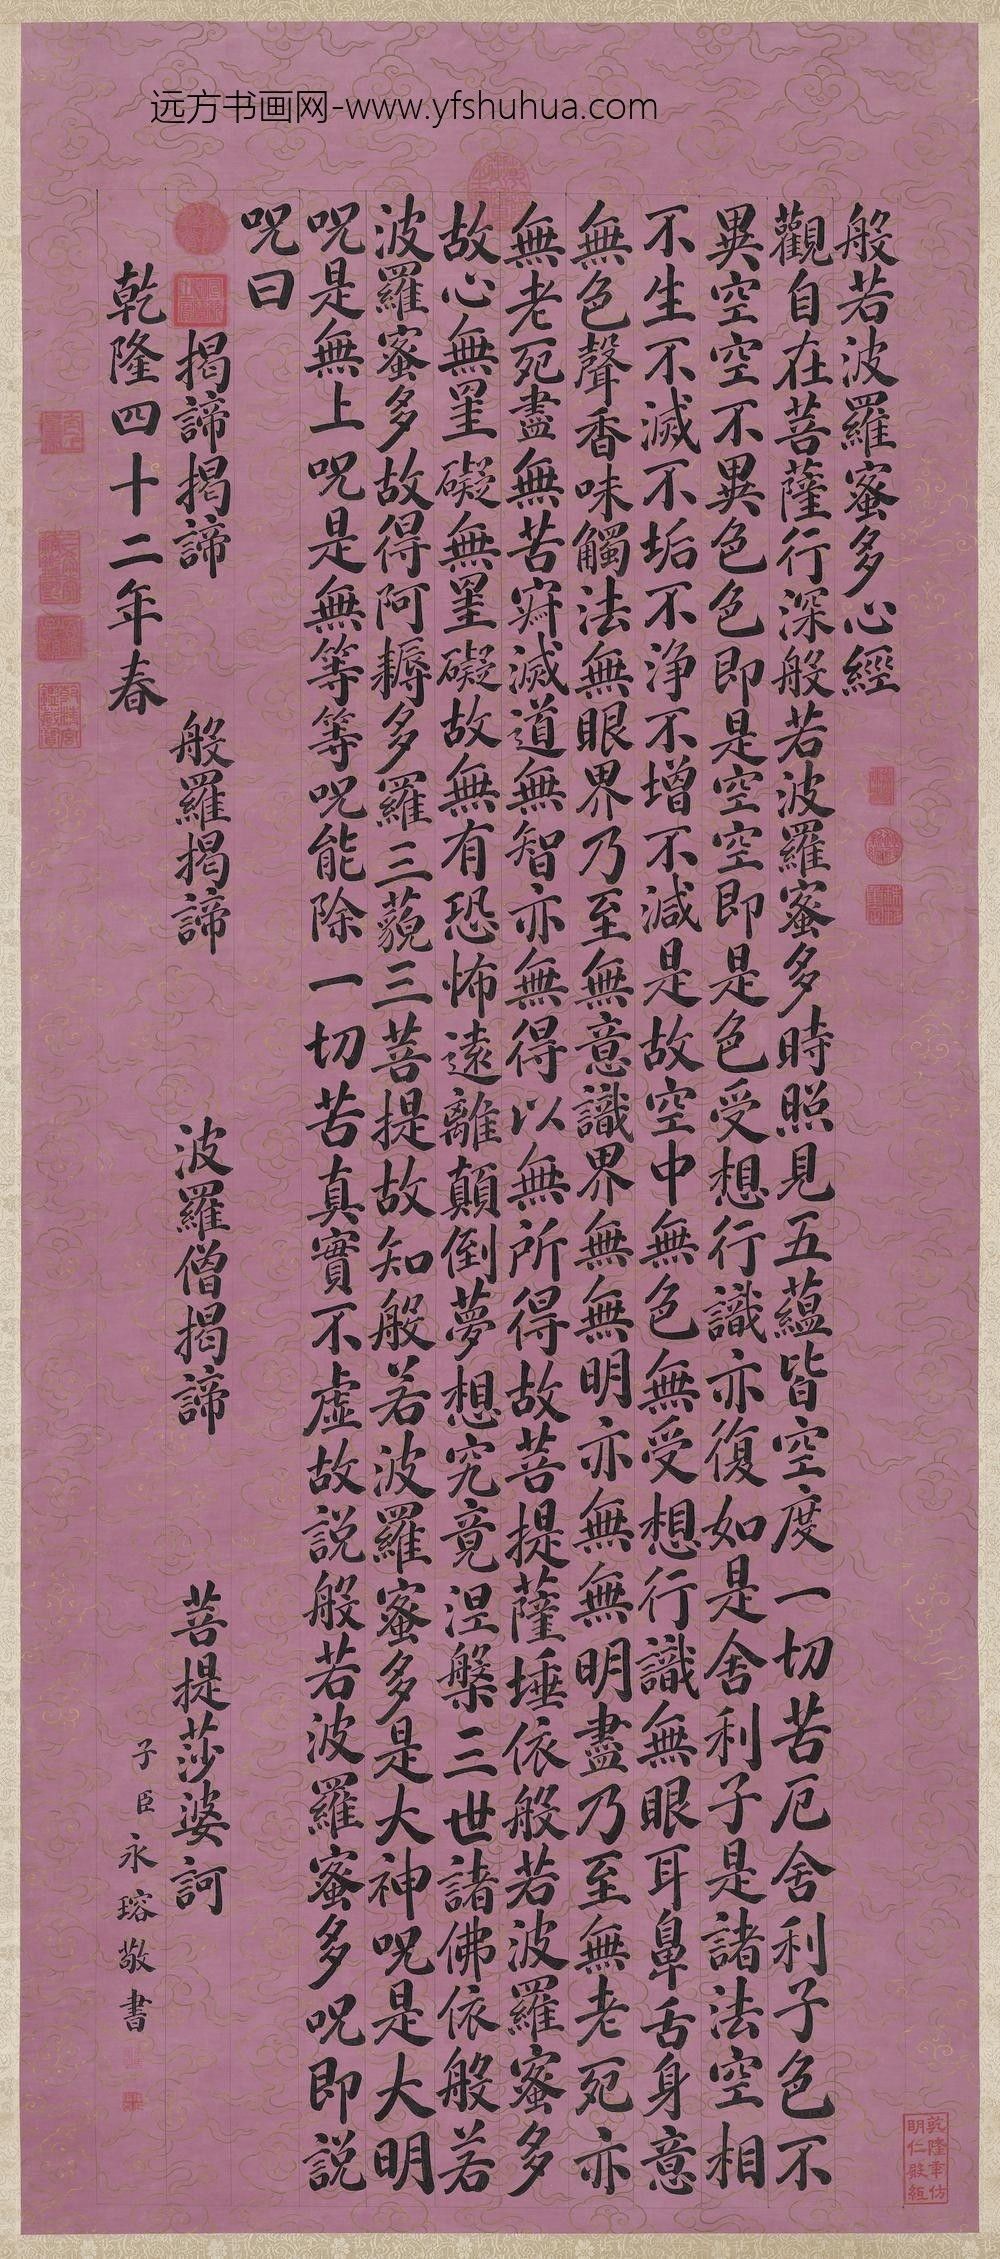 远方书画网-www.yfshuhua.com
般若波羅蜜多心經
觀自在菩薩行深般若波羅蜜多時照見五蘊皆空度一切苦厄舍利子色不
異空空不異色色即是空空即是色受想行識亦復如是舍利子是諸法空相
不生不滅不垢不淨不增不減是故空中無色無受想行識無眼耳鼻舌身意
無色聲香味觸法無眼界乃至無意識界無無明亦無無明盡乃至無老死亦
無老死盡無苦寂滅道無智亦無得以無所得故菩提薩埵依般若波羅蜜多
故心無罣礙無罣礙故無有恐怖遠離顛倒夢想究竟涅槃三世諸佛依般若
波羅蜜多故得阿耨多羅三藐三菩提故知般若波羅蜜多是大神呪是大明
呪是無上呪是無等等呪能除一切苦真實不虛故說般若波羅蜜多呪即說
呪曰
揭諦揭諦 般羅揭諦 波羅僧揭諦 菩提莎婆訶
乾隆四十二年春 子臣永瑢敬書
乾隆年仿
明仁殿紙